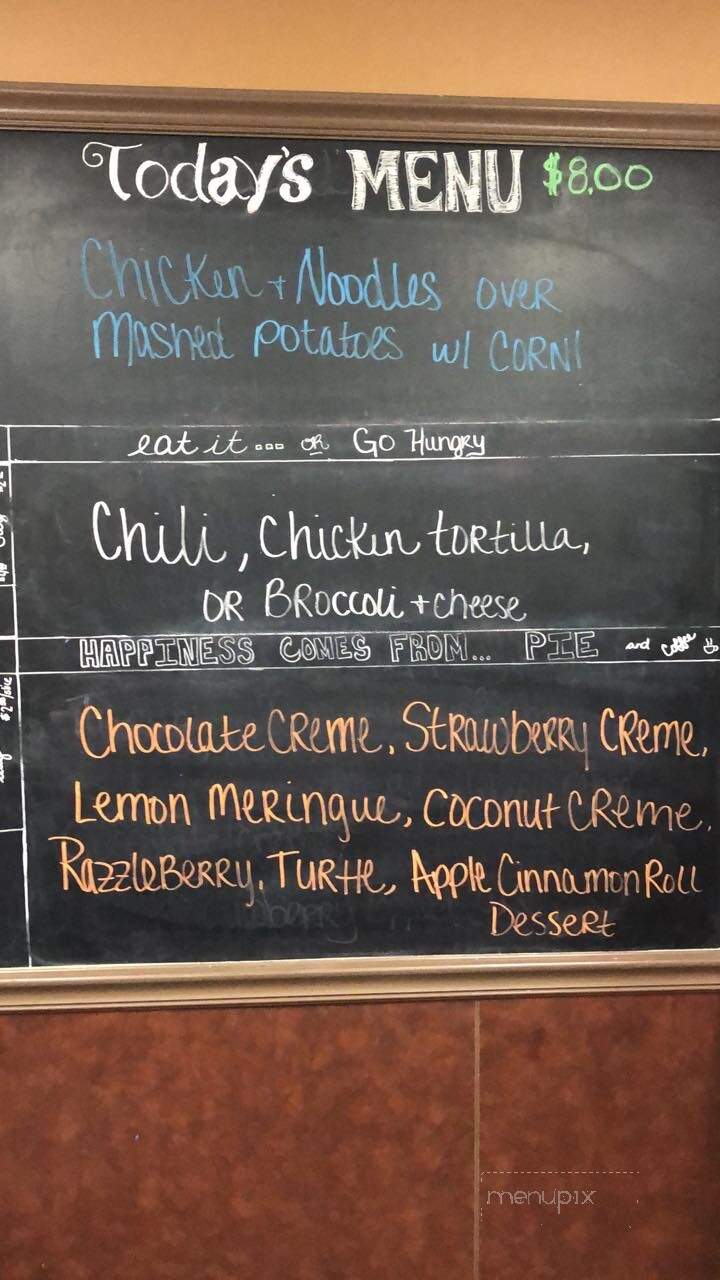 Today's MENU $8.00
Chicken + Noodles over
Mashed Potatoes w/ CORN!
eat it... OR Go Hungry
Chili, Chicken tortilla,
OR BROCCOLI + cheese
HAPPINESS COMES FROM... PIE and coffee
Chocolate CReme, Strawberry CReme,
Lemon Meringue, Coconut CReme,
RazzleBerry, Turtle, Apple Cinnamon Roll
Dessert
menupix